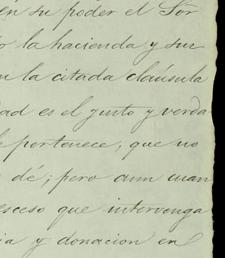 én su poder el Sor
o la hacienda y sus
n la citada cláusula
dad es el justo y verda
le pertenece; que no
dé; pero aun cuan
esceso que intervenga
ia y donacion en